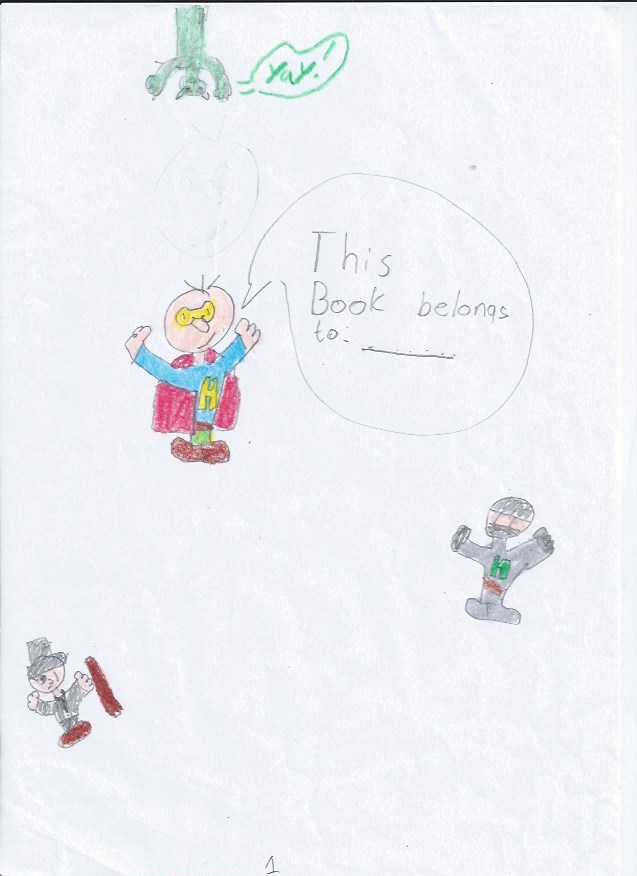 Yay!
This
Book belongs
to: _______
H
H
1